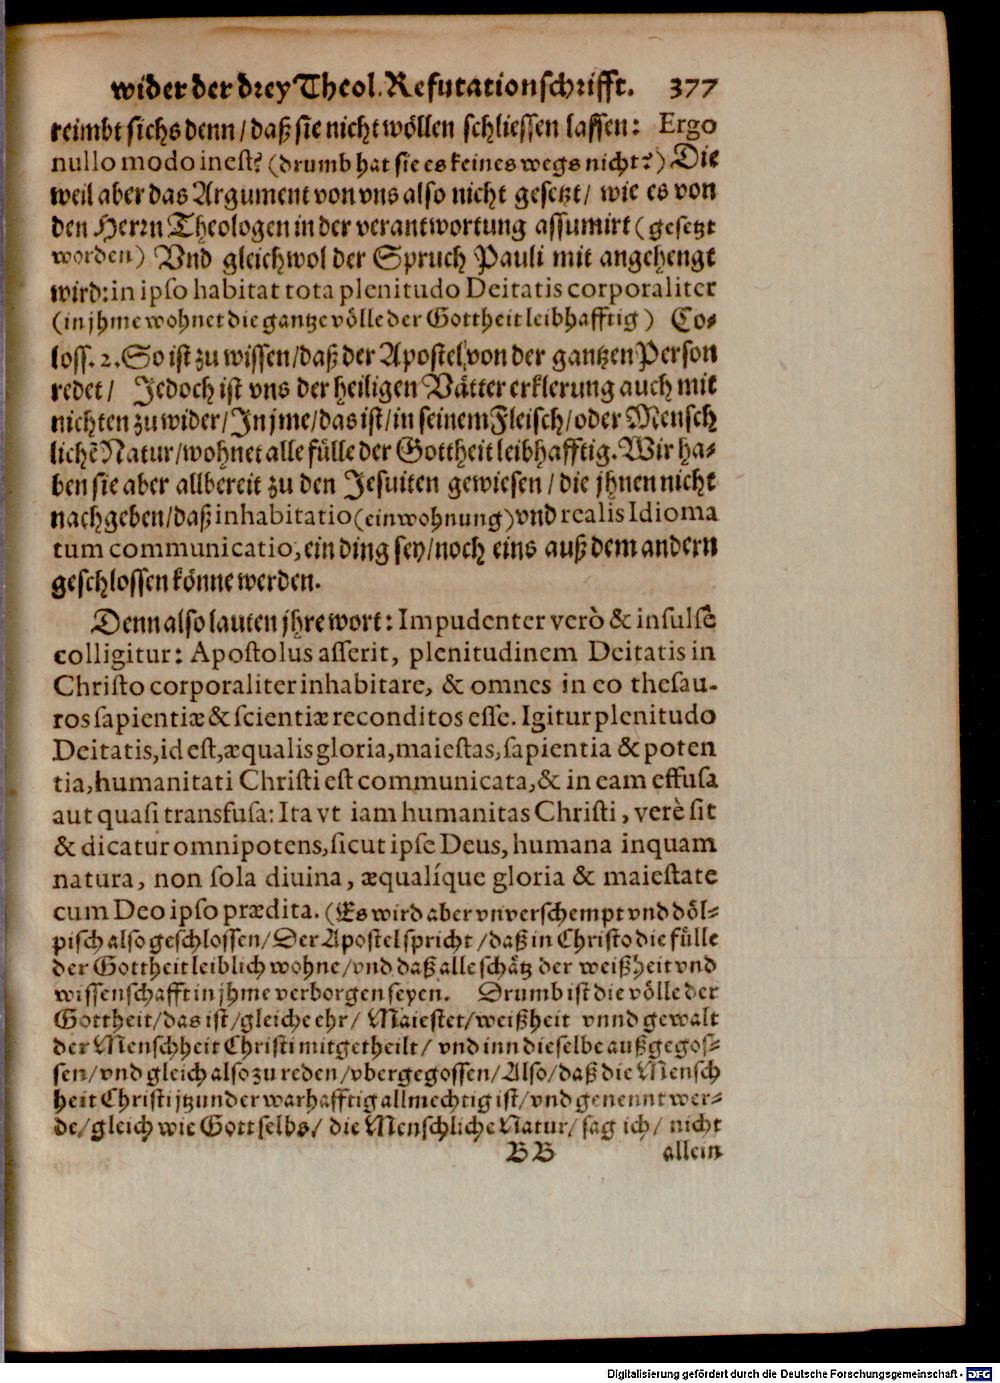 wider der drey Theol. Refutationschrifft. 377
reimbt sichs denn / daß sie nicht wöllen schliessen lassen: Ergo
nullo modo inest? (drumb hat sie es keines wegs nicht?) Die
weil aber das Argument von vns also nicht gesetzt / wie es von
den Herrn Theologen in der verantwortung assumirt (gesetzt
worden) Vnd gleichwol der Spruch Pauli mit angehengt
wird: in ipso habitat tota plenitudo Deitatis corporaliter
(in jhme wohnet die gantze völle der Gottheit leibhafftig) Co-
loss. 2. So ist zu wissen / daß der Apostel von der gantzen Person
redet / Jedoch ist vns der heiligen Vätter erklerung auch mit
nichten zu wider / In jme / das ist / in seinem Fleisch / oder Mensch
lichẽ Natur / wohnet alle fülle der Gottheit leibhafftig. Wir ha-
ben sie aber allbereit zu den Jesuiten gewiesen / die jhnen nicht
nachgeben / daß inhabitatio (einwohnung) vnd realis Idioma
tum communicatio, ein ding sey / noch eins auß dem andern
geschlossen könne werden.
Denn also lauten jhre wort: Impudenter verò & insulsè
colligitur: Apostolus asserit, plenitudinem Deitatis in
Christo corporaliter inhabitare, & omnes in eo thesau-
ros sapientiæ & scientiæ reconditos esse. Igitur plenitudo
Deitatis, id est, æqualis gloria, maiestas, sapientia & poten
tia, humanitati Christi est communicata, & in eam effusa
aut quasi transfusa: Ita vt iam humanitas Christi, verè sit
& dicatur omnipotens, sicut ipse Deus, humana inquam
natura, non sola diuina, æqualíque gloria & maiestate
cum Deo ipso prædita. (Es wird aber vnverschempt vnd döl-
pisch also geschlossen / Der Apostel spricht / daß in Christo die fülle
der Gottheit leiblich wohne / vnd daß alle schätz der weißheit vnd
wissenschafft in jhme verborgen seyen. Drumb ist die völle der
Gottheit / das ist / gleiche ehr / Maiestet / weißheit vnnd gewalt
der Menschheit Christi mitgetheilt / vnd inn dieselbe außgegos-
sen / vnd gleich also zu reden / vbergegossen / Also / daß die Mensch
heit Christi jtzunder warhafftig allmechtig ist / vnd genennt wer-
de / gleich wie Gott selbs / die Menschliche Natur / sag ich / nicht
BB allein
Digitalisierung gefördert durch die Deutsche Forschungsgemeinschaft - DFG